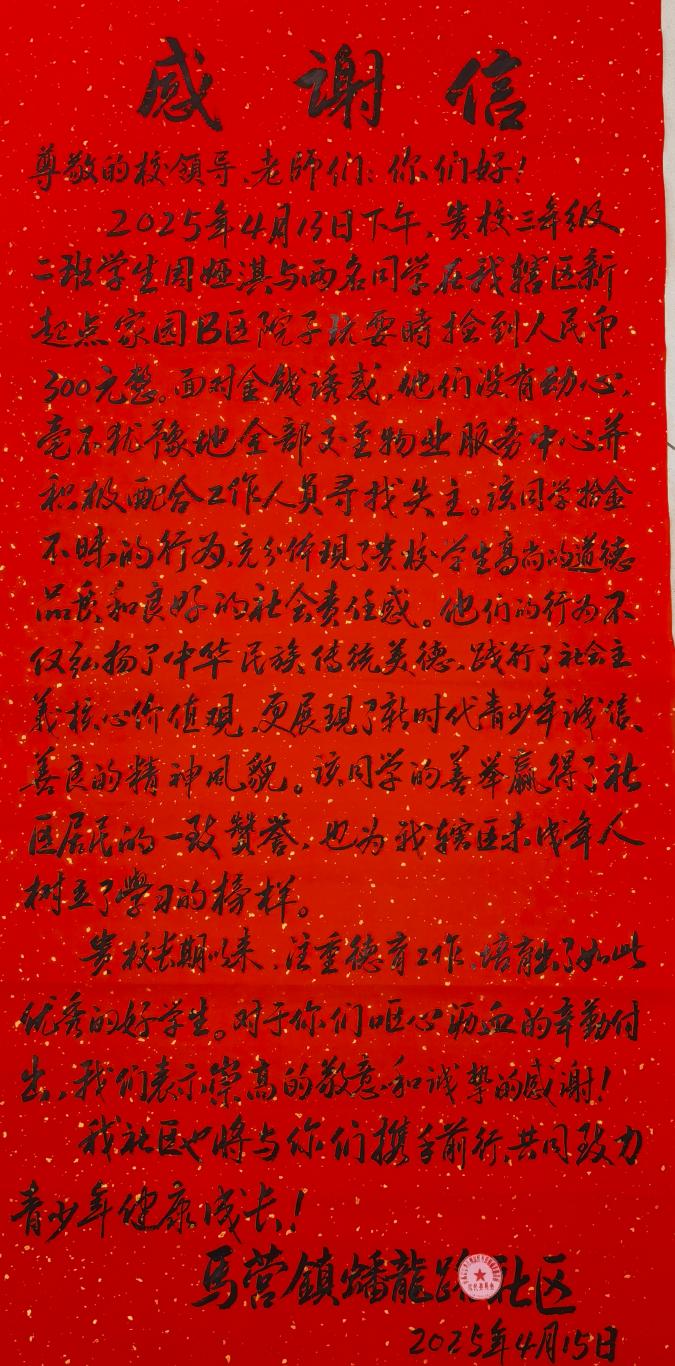 感谢信
尊敬的校领导、老师们：你们好！
2025年4月13日下午，贵校三年级
二班学生周娅淇与两名同学在我辖区新
起点家园B区院子玩耍時捡到人民币
300元整。面对金钱诱惑，他们没有动心，
毫不犹豫地全部交至物业服务中心并
积极配合工作人员寻找失主。该同学拾金
不昧的行为，充分体现了贵校学生高尚的道德
品质和良好的社会责任感。他们的行为不
仅弘扬了中华民族传统美德，践行了社会主
義核心价值观，更展現了新时代青少年诚信、
善良的精神风貌。该同学的善举赢得了社
区居民的一致赞誉，也为我辖区未成年人
树立了學习的榜样。
贵校长期以来，注重德育工作，培育出了如此
优秀的好学生。对于你们呕心沥血的辛勤付
出，我们表示崇高的敬意和诚挚的感谢！
我社区也將与你们携手前行，共同致力
青少年健康成长！
馬营鎮蟠龍路社区
2025年4月15日